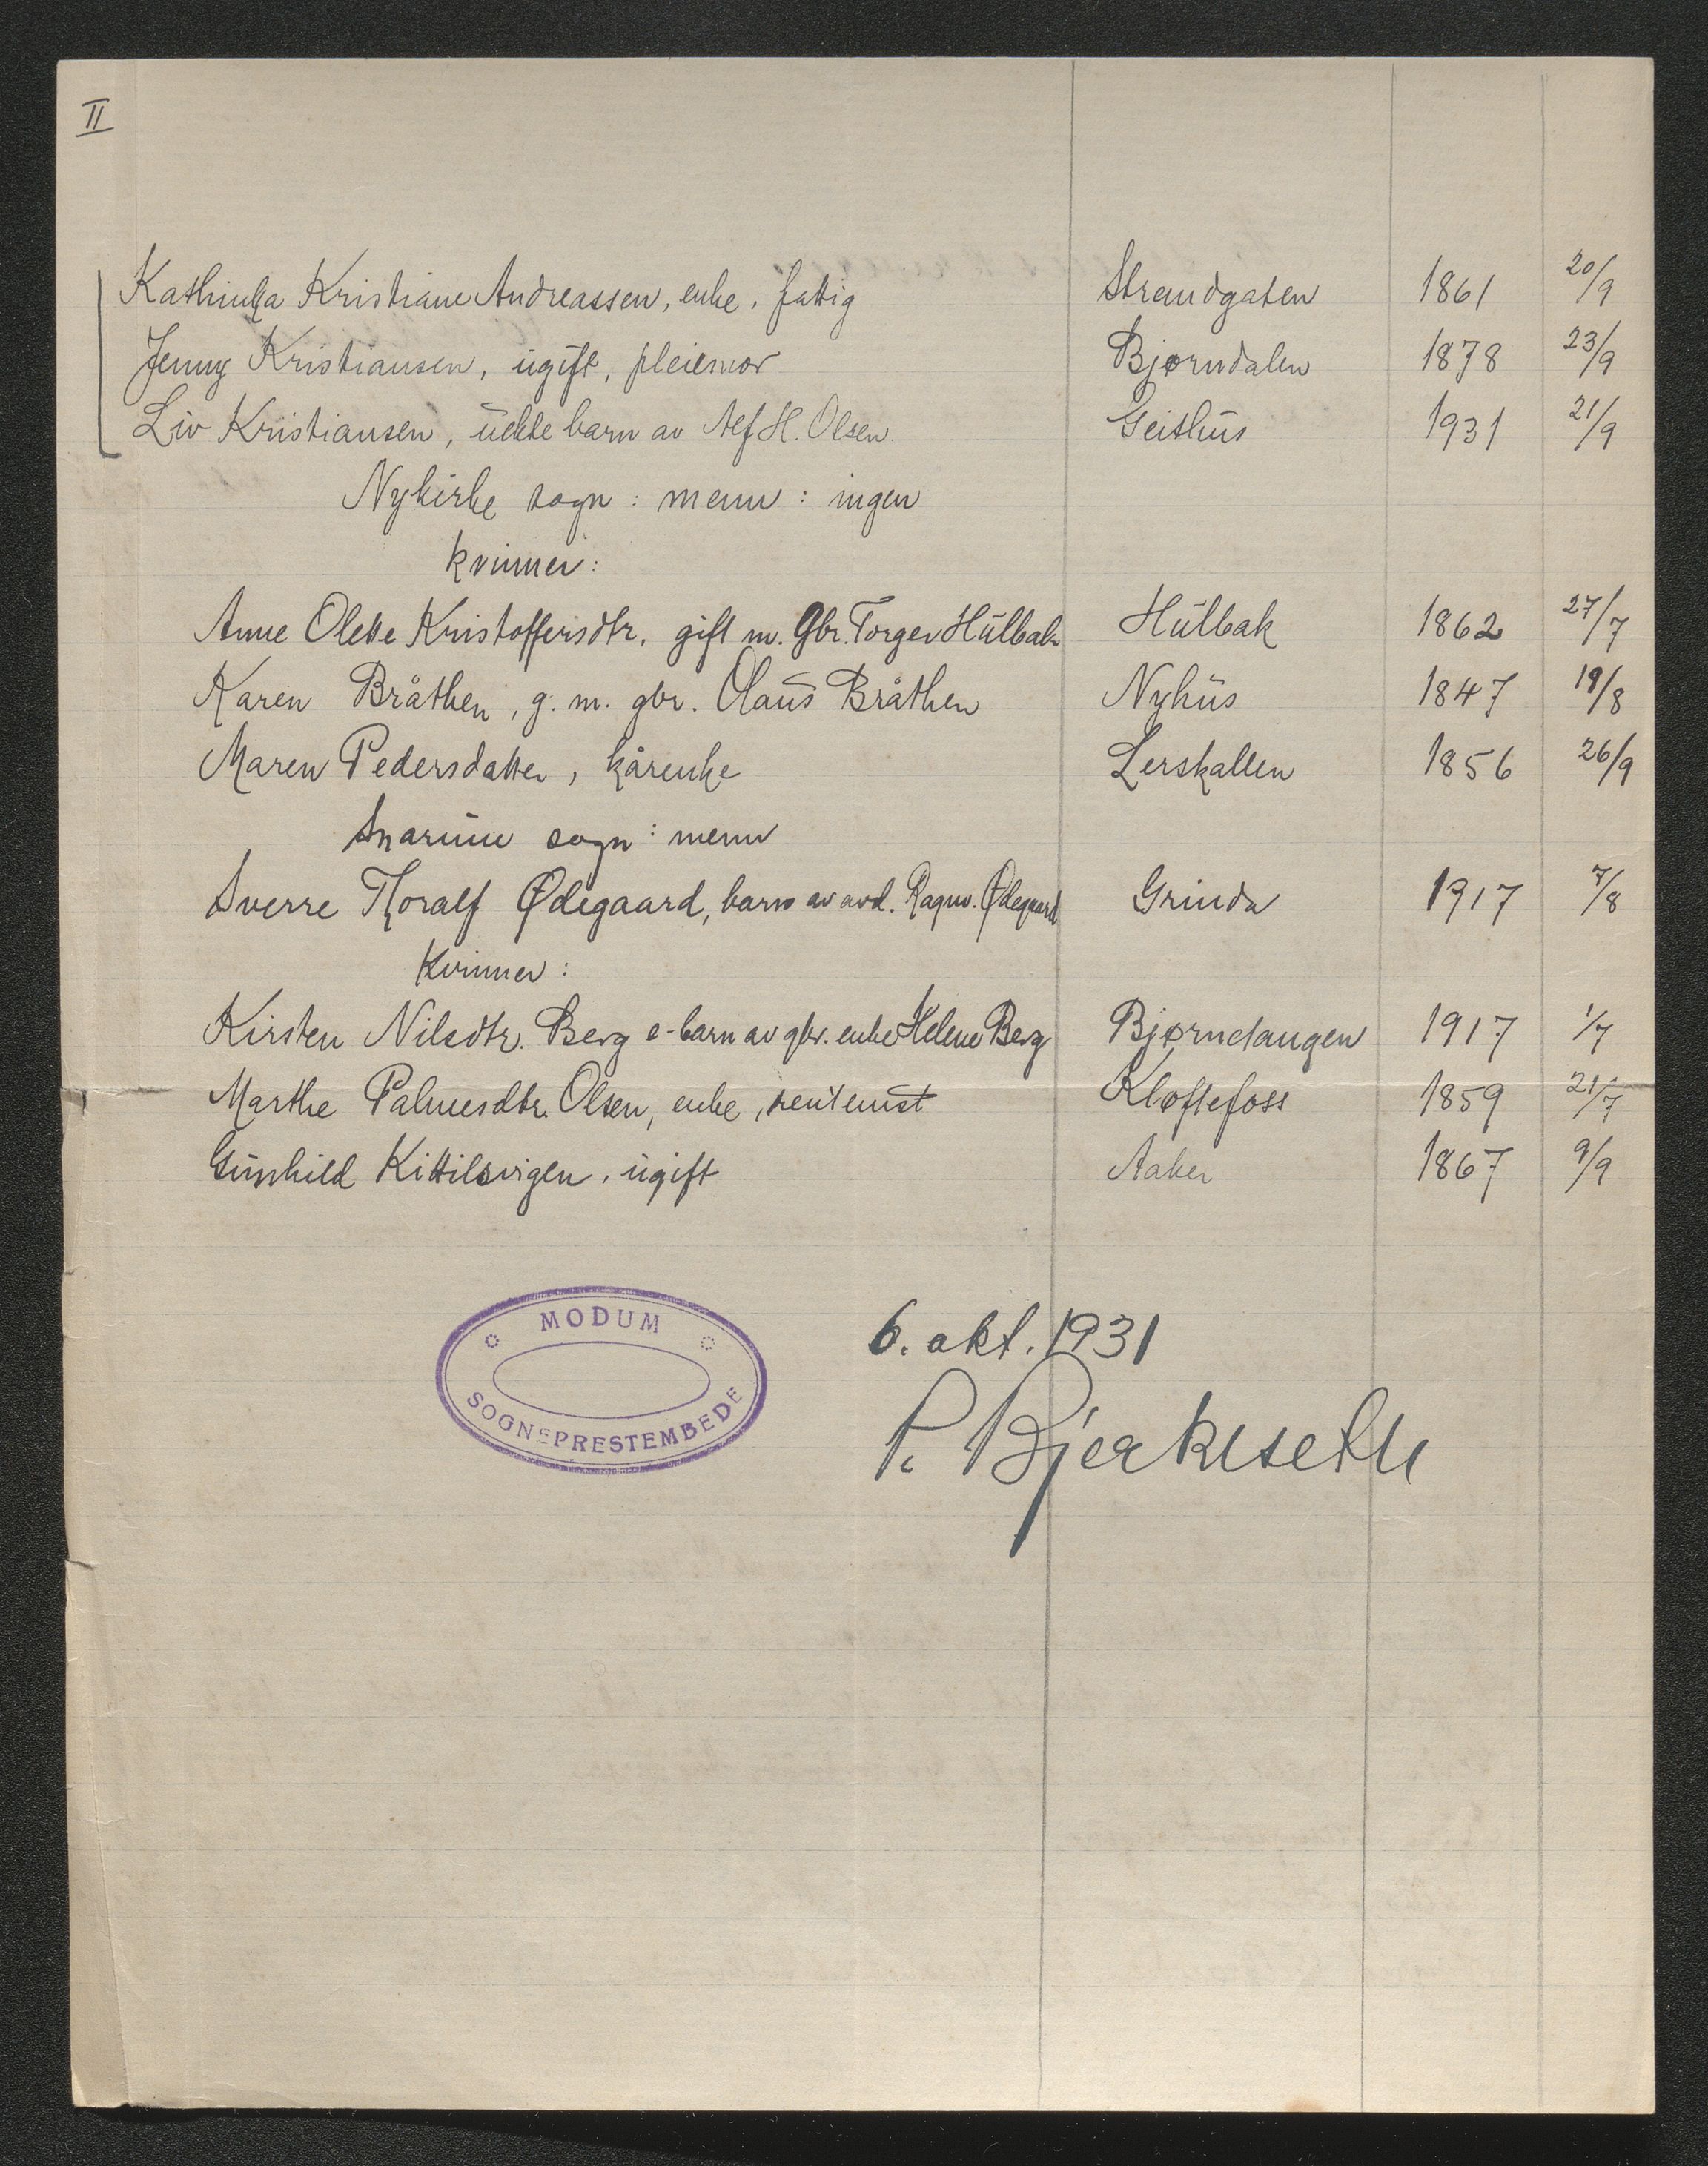 II
Kathinka Kristiane Andreassen, enke, fattig Strandgaten 1861 20/9
Jenny Kristiansen, ugift, pleiemor Bjørndalen 1878 23/9
Liv Kristiansen, uekte barn av Alf H. Olsen. Geithus 1931 21/9
Nykirke sogn: menn: ingen
kvinner:
Anne Olette Kristoffersdtr. gift m. gbr. Torger Hulbak Hulbak 1862 27/7
Karen Bråthen, g. m. gbr. Olaus Bråthen Nyhus 1847 19/8
Maren Pedersdatter, kårenke Lerskallen 1856 26/9
Snarum sogn: menn
Sverre Thoralf Ødegaard, barn av avd. Ragnv. Ødegaard Grinda 1917 7/8
Kvinner:
Kirsten Nilsdtr. Berg e-barn av gbr. enke Helene Berg Bjørndangen 1917 1/7
Marthe Palmesdtr. Olsen, enke, Kløftefoss 1859 21/7
Gunhild Kittilsvigen, ugift Aaker 1867 9/9
MODUM
SOGNEPRESTEMBEDE
6. okt. 1931
P. Bjerkeseth